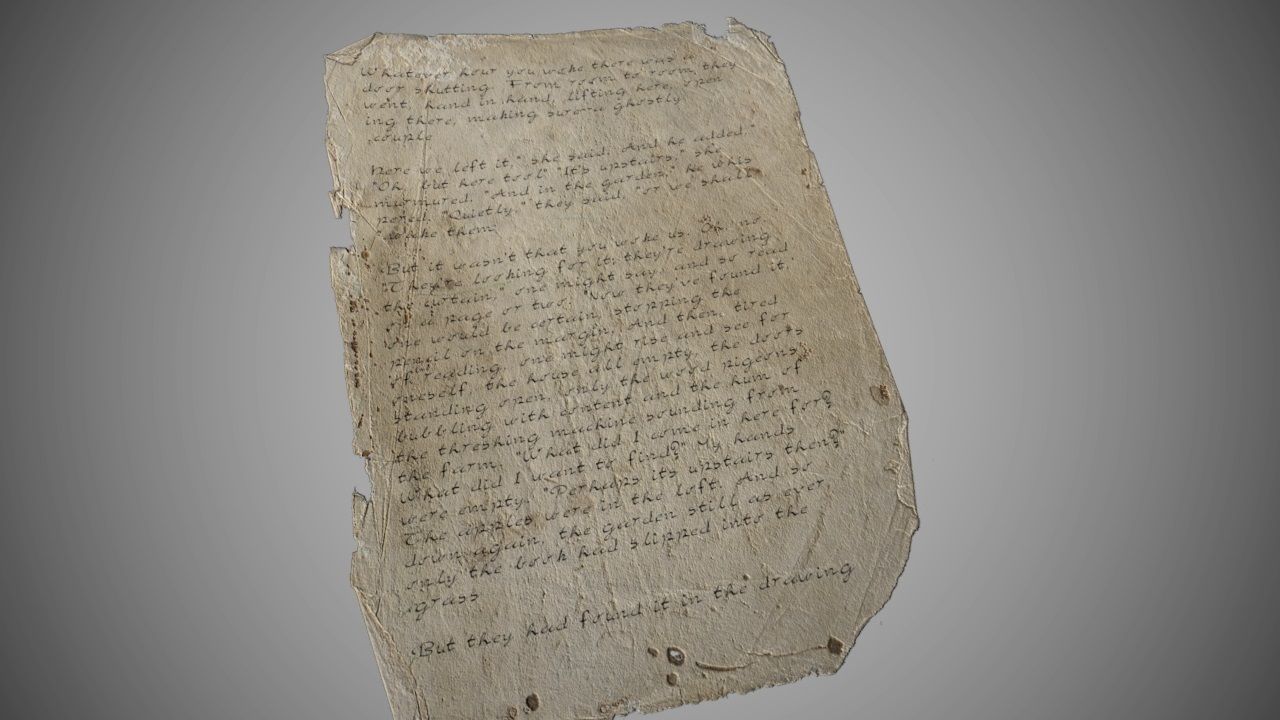 Whatever hour you woke there was a
door shutting. From room to room they
went, hand in hand, lifting here, open
ing there, making sure—a ghostly
couple
Here we left it," she said. And he added,
"Oh, but here too!" "It's upstairs," she
murmured. "And in the garden," he whis
pered. "Quietly," they said, "or we shall
wake them
But it wasn't that you woke us. Oh, no
"They're looking for it; they're drawing
the curtain," one might say, and so read
on a page or two. "Now they've found it,
one would be certain, stopping the
pencil on the margin. And then, tired
of reading, one might rise and see for
oneself, the house all empty, the doors
standing open, only the wood pigeons
bubbling with content and the hum of
the threshing machine sounding from
the farm. "What did I come in here for?
What did I want to find?" My hands
were empty. "Perhaps its upstairs then?"
The apples were in the loft. And so
down again, the garden still as ever,
only the book had slipped into the
grass
But they had found it in the drawing